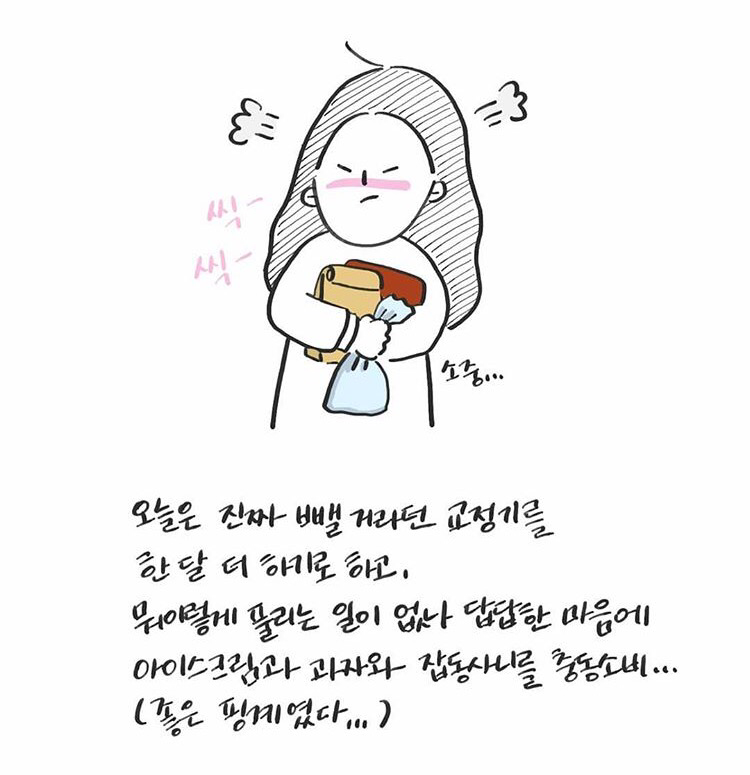 씩-
씩-
소중...
오늘은 진짜 빼낼 거라던 교정기를
한 달 더 하기로 하고.
뭐이렇게 풀리는 일이 없나 답답한 마음에
아이스크림과 과자와 잡동사니를 충동소비...
(좋은 핑계였다...)